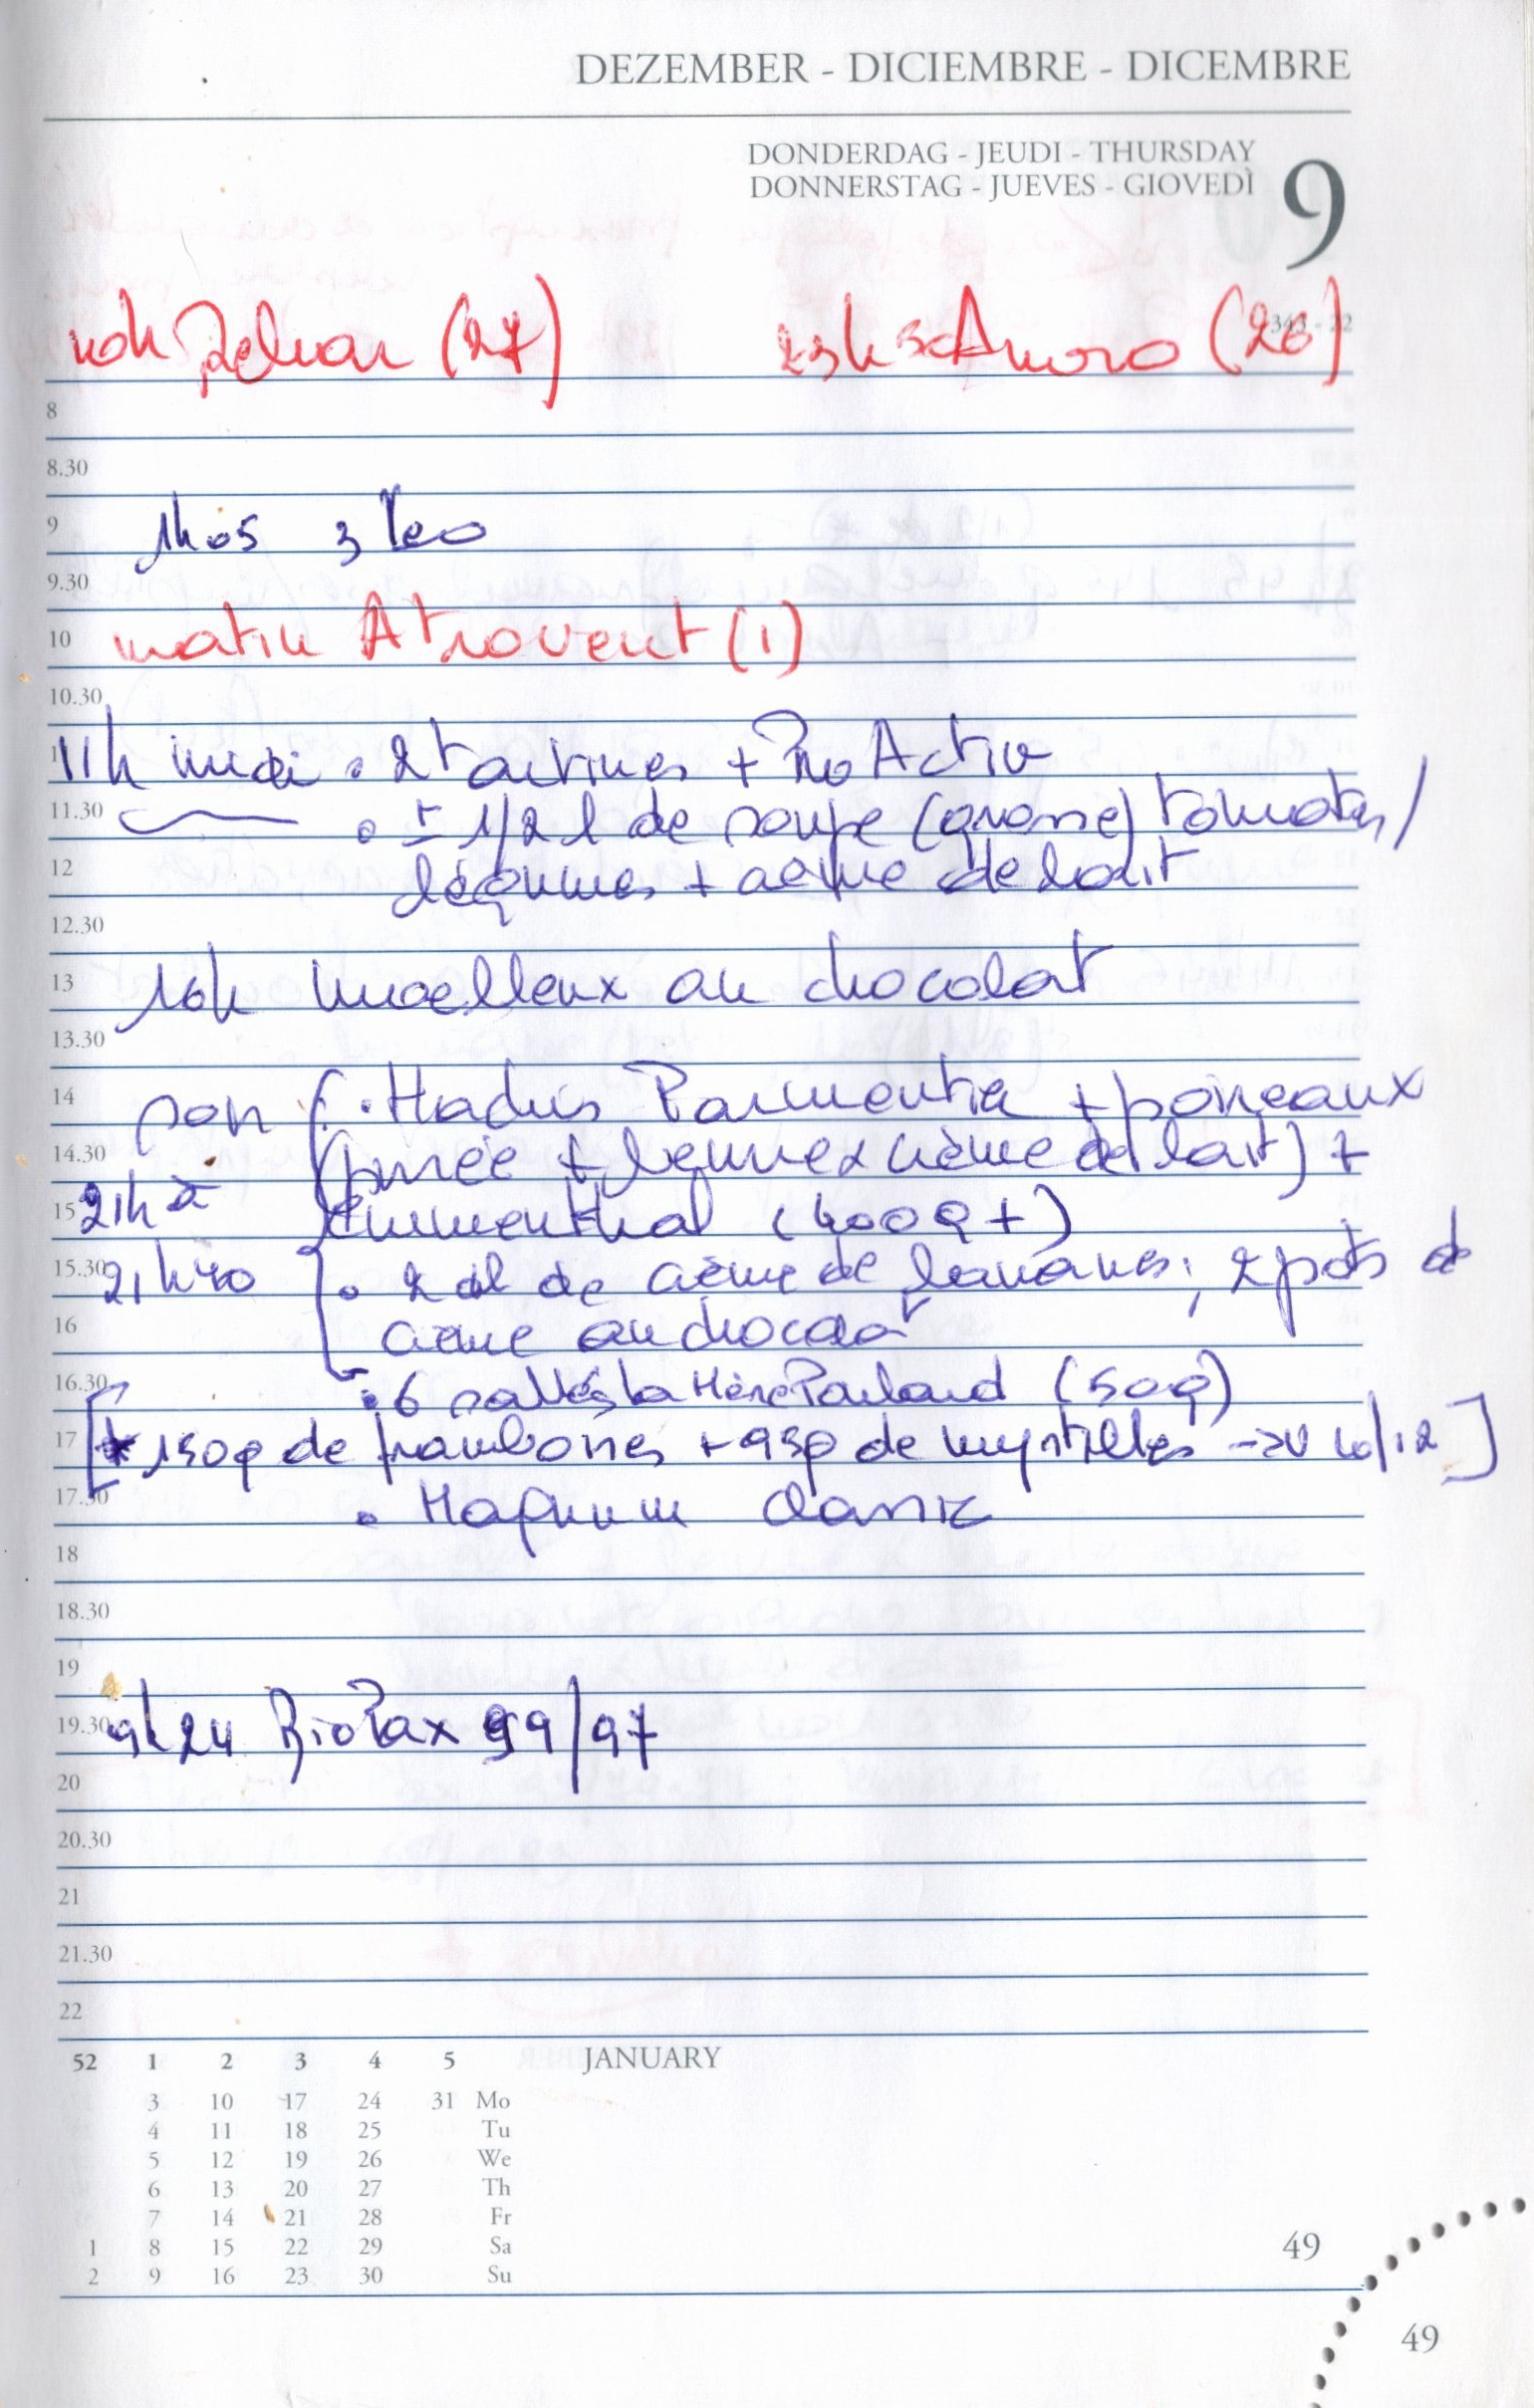 DEZEMBER - DICIEMBRE - DICEMBRE
DONDERDAG - JEUDI - THURSDAY
DONNERSTAG - JUEVES - GIOVEDÌ
9
343 - 22
(27) 23h30 Amoro (26)
8
8.30
9 1h05 3 Leo
9.30
10 matin Atrovent (1)
10.30
11 11h midi • 2 tartines + Pro Activ
11.30 • ± 1/2 l de soupe (grosse) tomates/
12 légumes + crème de lait
12.30
13 16h moelleux au chocolat
13.30
14 • Hachis Parmentier + poireaux
14.30 (purée + beurre x crème de lait) +
15 21h à Emmenthal (400g +)
15.30 21h40 • 2 dl de crème de bananes; 2 pots de
16 crème au chocolat
16.30 • 6 sablés la Mère Poulard (50g)
17 [* 150g de framboises + 95g de myrtilles → V 10/12]
17.30 • Magnum Classic
18
18.30
19
19.30 9h24 RioPax 99/97
20
20.30
21
21.30
22
52 1 2 3 4 5 JANUARY
3 10 17 24 31 Mo
4 11 18 25 Tu
5 12 19 26 We
6 13 20 27 Th
7 14 21 28 Fr
1 8 15 22 29 Sa
2 9 16 23 30 Su
49
49